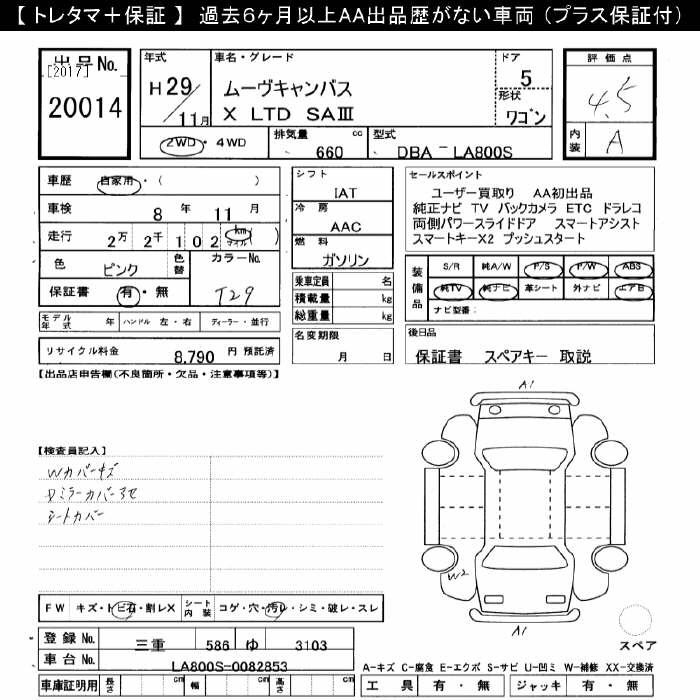 【 トレタマ＋保証 】 過去6ヶ月以上AA出品歴がない車両（プラス保証付）
出 品 No.
[2017]
20014
年式
H 29/11月
車名・グレード
ムーヴキャンバス
X LTD SAⅢ
ドア
5
形状
ワゴン
2WD ・ 4WD
排気量
660 cc
型式
DBA － LA800S
評 価 点
4.5
内装
A
車歴 自家用・（ ）
車検 8 年 11 月
走行 2万 2千 1 0 2 km マイル ( )
色 ピンク
色替
カラーNo.
T29
保証書 有・無
モデル年式 年 ハンドル 左・右 ディーラー・並行
リサイクル料金 8,790 円 預託済
シフト
IAT
冷 房
AAC
燃 料
ガソリン
乗車定員 名
積載量 kg
総重量 kg
名変期限
月 日
セールスポイント
ユーザー買取り AA初出品
純正ナビ TV バックカメラ ETC ドラレコ
両側パワースライドドア スマートアシスト
スマートキーX2 プッシュスタート
装備品
S/R 純A/W P/S P/W ABS
純TV 純ナビ 革シート 外ナビ エアB
ナビ型番：
後日品
保証書 スペアキー 取説
【出品店申告欄(不良箇所・欠品・注意事項等)】
【検査員記入】
Wカバーキズ
Dミラーカバーキセ
シートカバー
A1
W2
A1
スペア
FW キズ・トビ石・割レX シート内装 コゲ・穴・汚レ・シミ・破レ・スレ
登録 No. 三重 586 ゆ 3103
車台 No. LA800S-0082853
車庫証明用 長さ cm 幅 cm 高さ cm
A-キズ C-腐食 E-エクボ S-サビ U-凹ミ W-補修 XX-交換済
工 具 有 ・ 無 ジャッキ 有 ・ 無